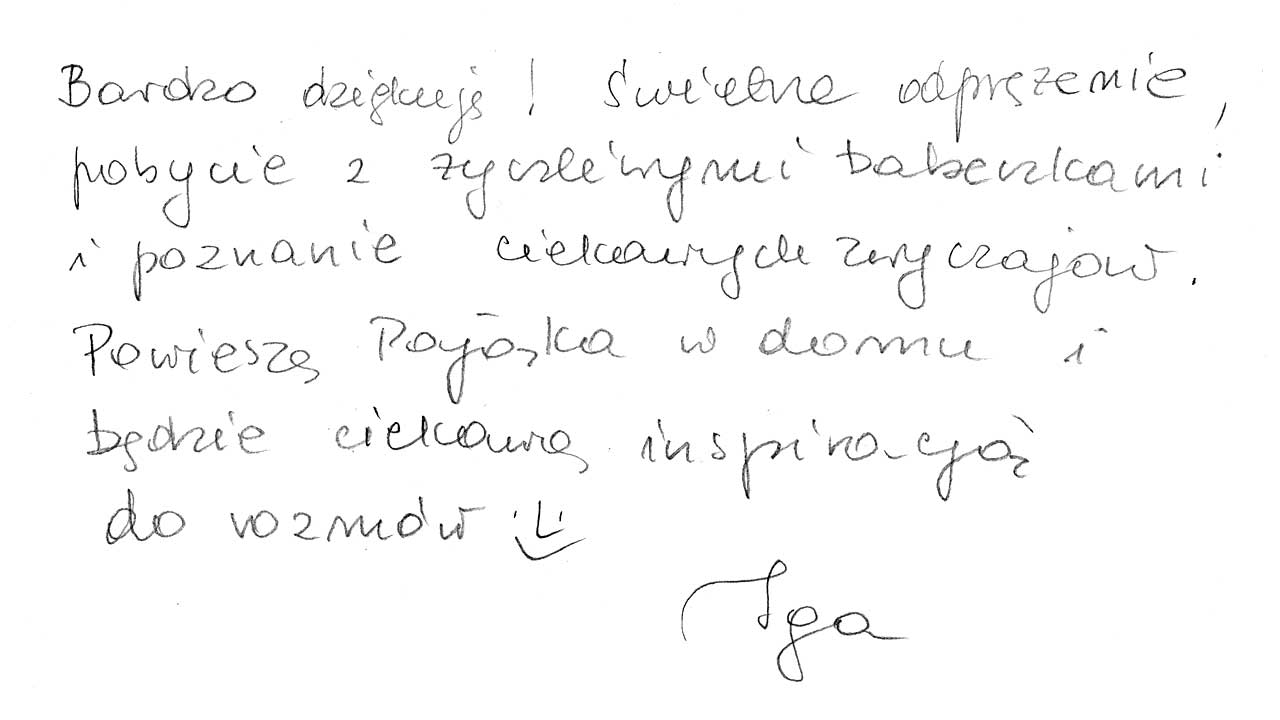 Bardzo dziękuję! Świetne odprężenie,
pobycie z życzliwymi babeczkami
i poznanie ciekawych zwyczajów.
Powieszę Pająka w domu i
będzie ciekawą inspiracją
do rozmów :)
Iga